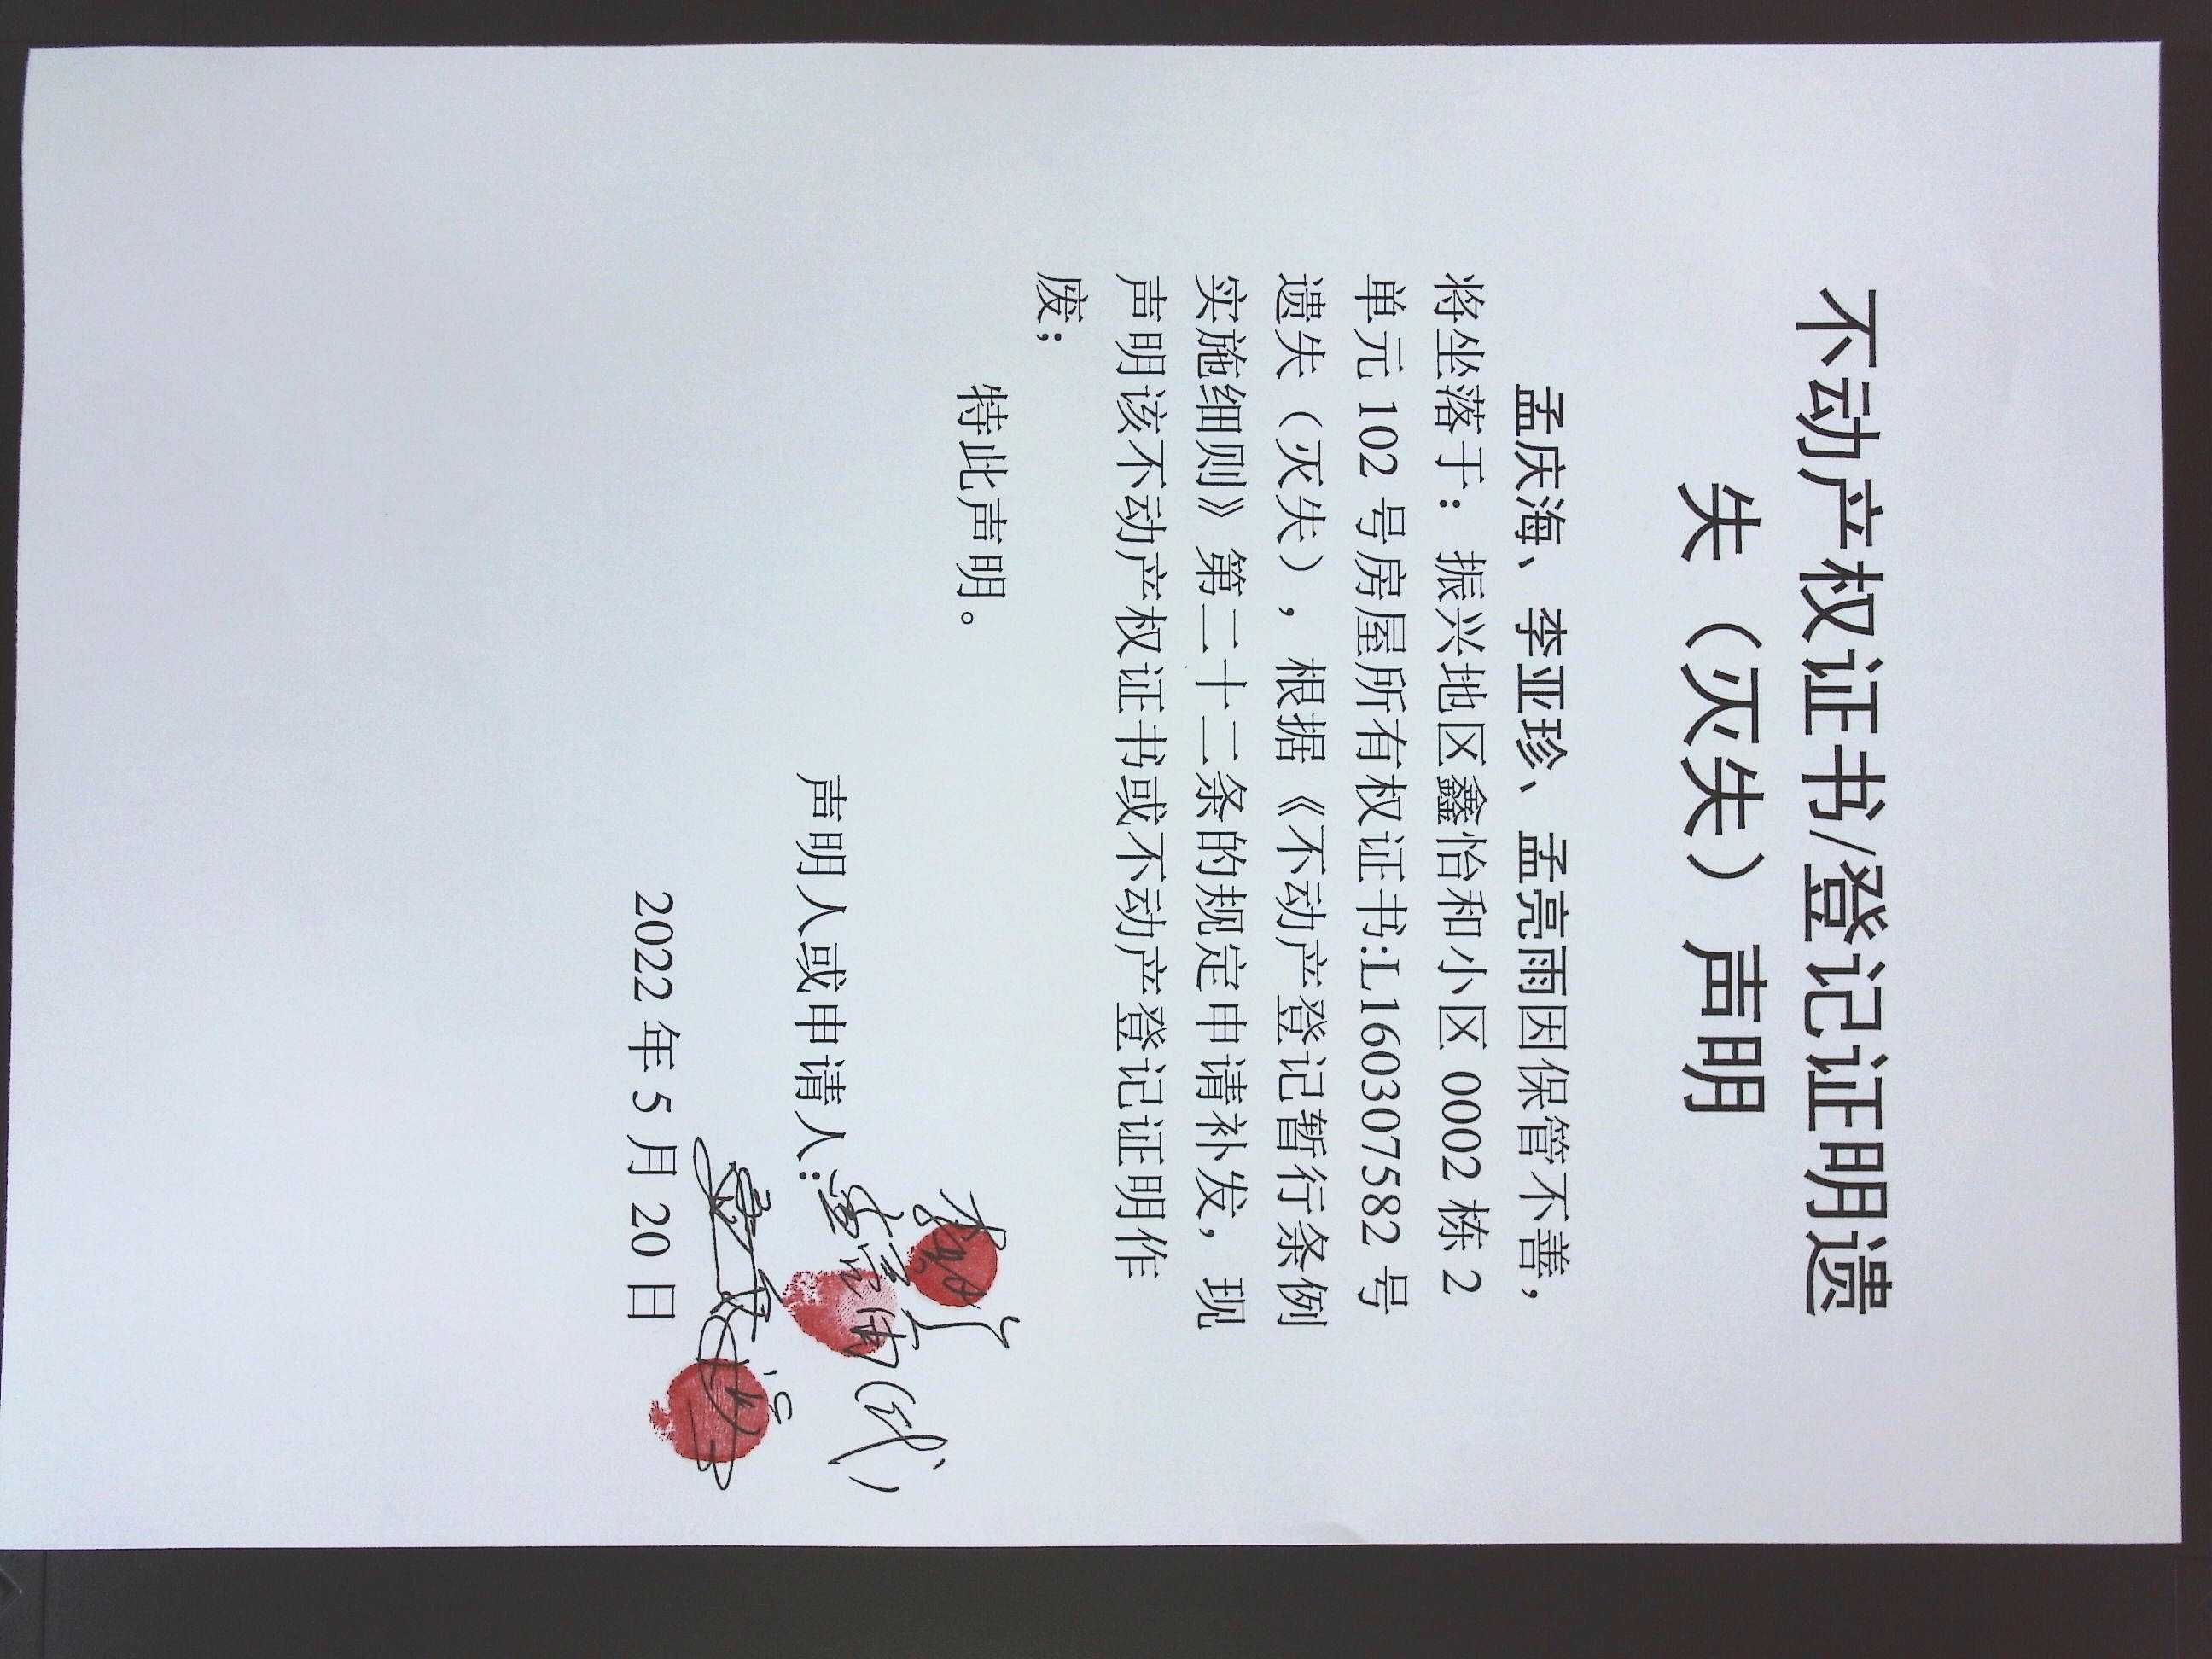 不动产权证书/登记证明遗
失（灭失）声明
孟庆海、李亚珍、孟亮雨因保管不善，
将坐落于：振兴地区鑫怡和小区 0002 栋 2
单元 102 号房屋所有权证书:L160307582 号
遗失（灭失），根据《不动产登记暂行条例
实施细则》第二十二条的规定申请补发，现
声明该不动产权证书或不动产登记证明作
废；
特此声明。
声明人或申请人：
2022 年 5 月 20 日